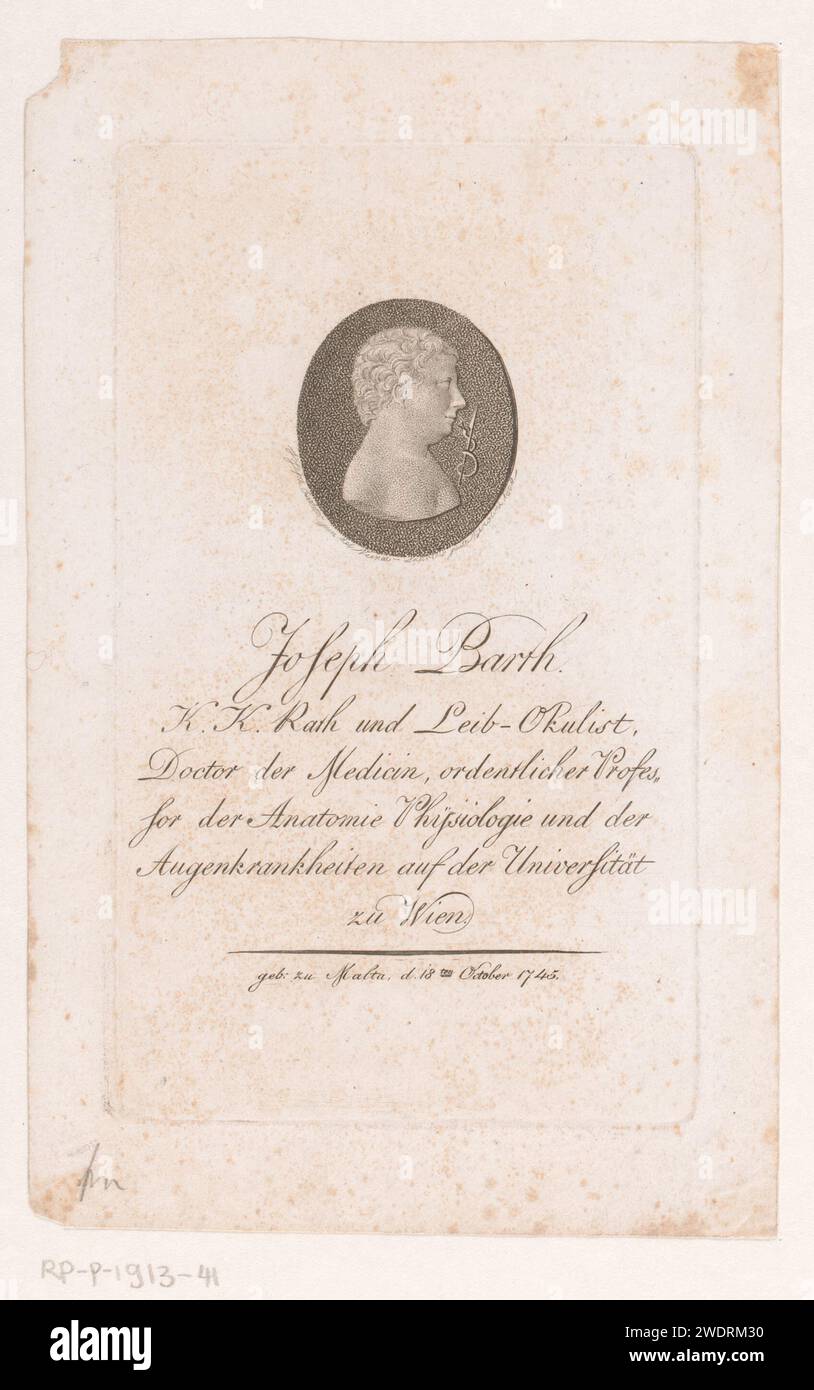 Joseph Barth.
K. K. Rath und Leib-Okulist,
Doctor der Medicin, ordentlicher Profes„
sor der Anatomie Physiologie und der
Augenkrankheiten auf der Universität
zu Wien.
geb: zu Malta, d. 18ten October 1745.
RP-P-1913-41
alamy
alamy
Image ID: 2WDRM30
www.alamy.com